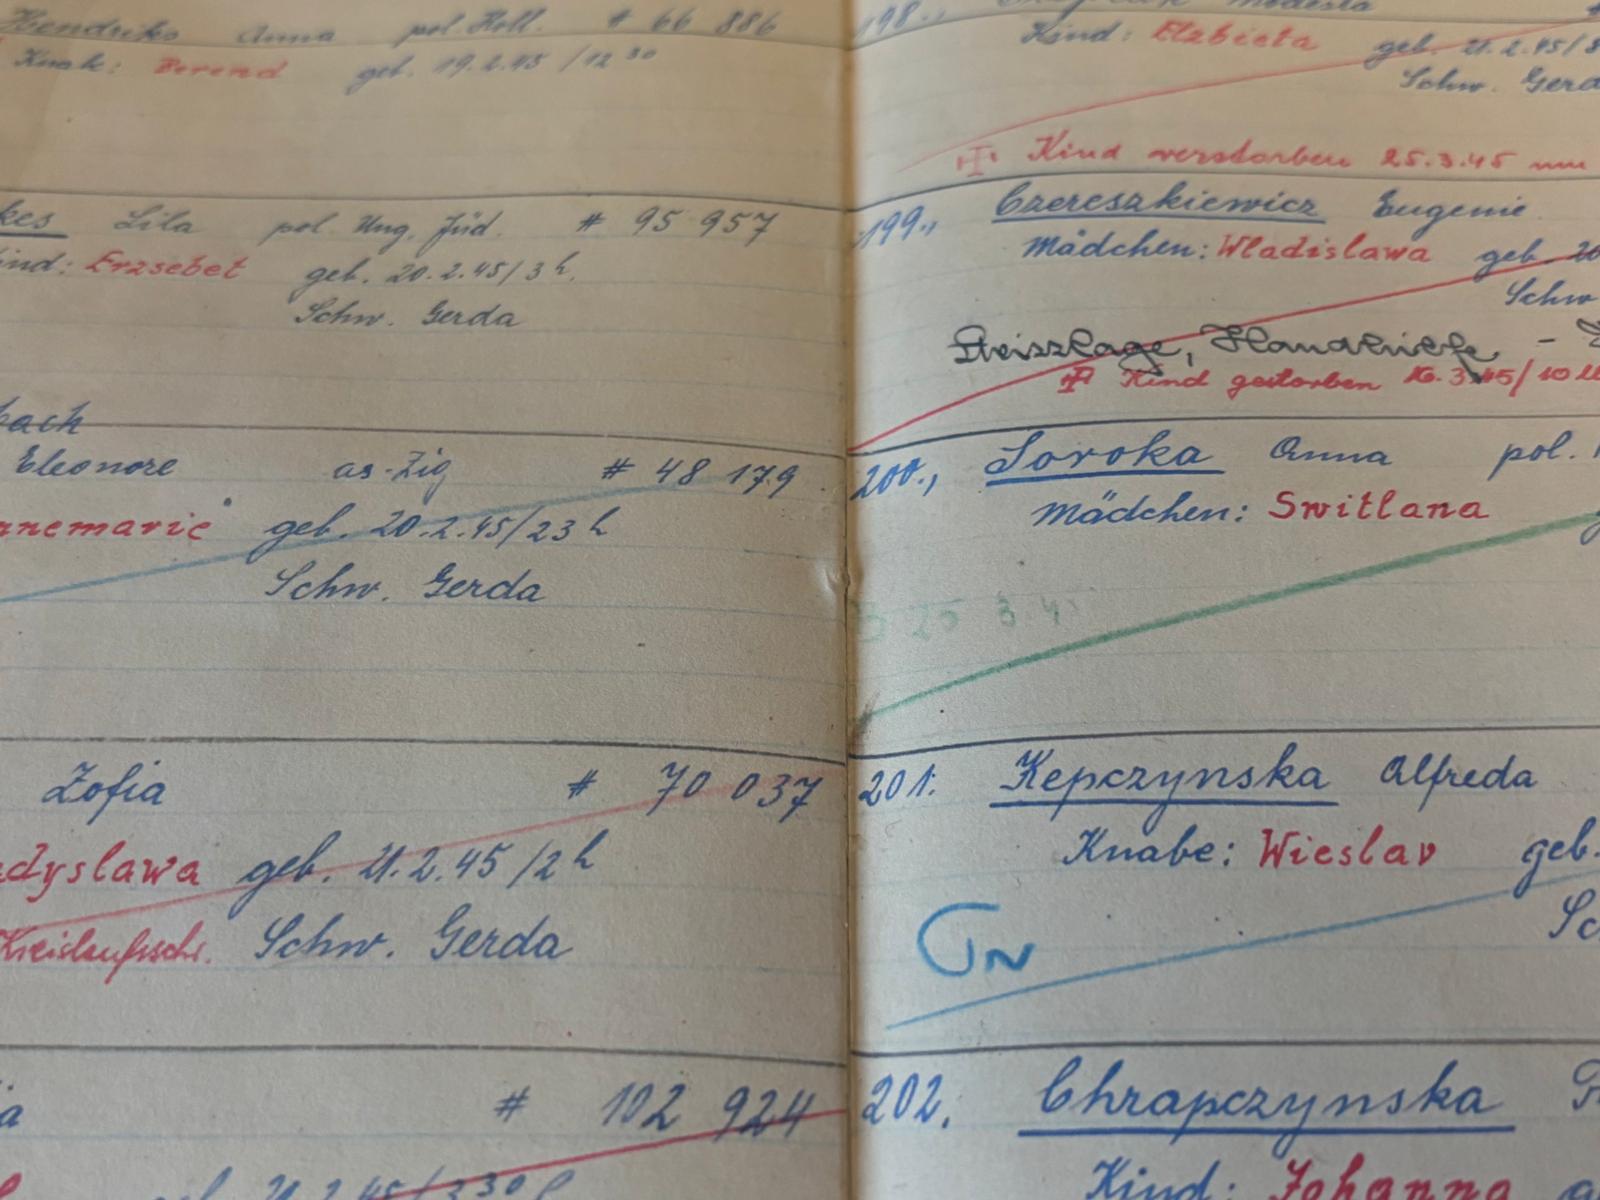 Hendriks Anna pol. Holl. # 66 886
Knab: Berend geb. 19.2.45 / 12 30
kes Lila pol. Ung. Jüd. # 95 957
ind: Erzsebet geb. 20.2.45/3 h.
Schw. Gerda
bach
Eleonore as-Zig # 48 179
nnemarie geb. 20.2.45/23 h
Schw. Gerda
Zofia # 70 037
adyslawa geb. 21.2.45/2 h
Kreislaufschw. Schw. Gerda
a # 102 924
geb. 21.2.45/3 30
198., Modesta
Kind: Elzbieta geb. 21.2.45/
Schw. Gerda
Kind verstorben 25.3.45 um
199., Czereszkiewicz Eugenie
Mädchen: Wladislawa geb. 20
Schw
Steisslage, Handhilfe -
Kind gestorben 16.3.45/10
200., Soroka Anna pol.
Mädchen: Switlana
25 3.4
201. Kepczynska Alfreda
Knabe: Wieslav geb.
Sc
202. Chrapczynska
Kind: Johanna